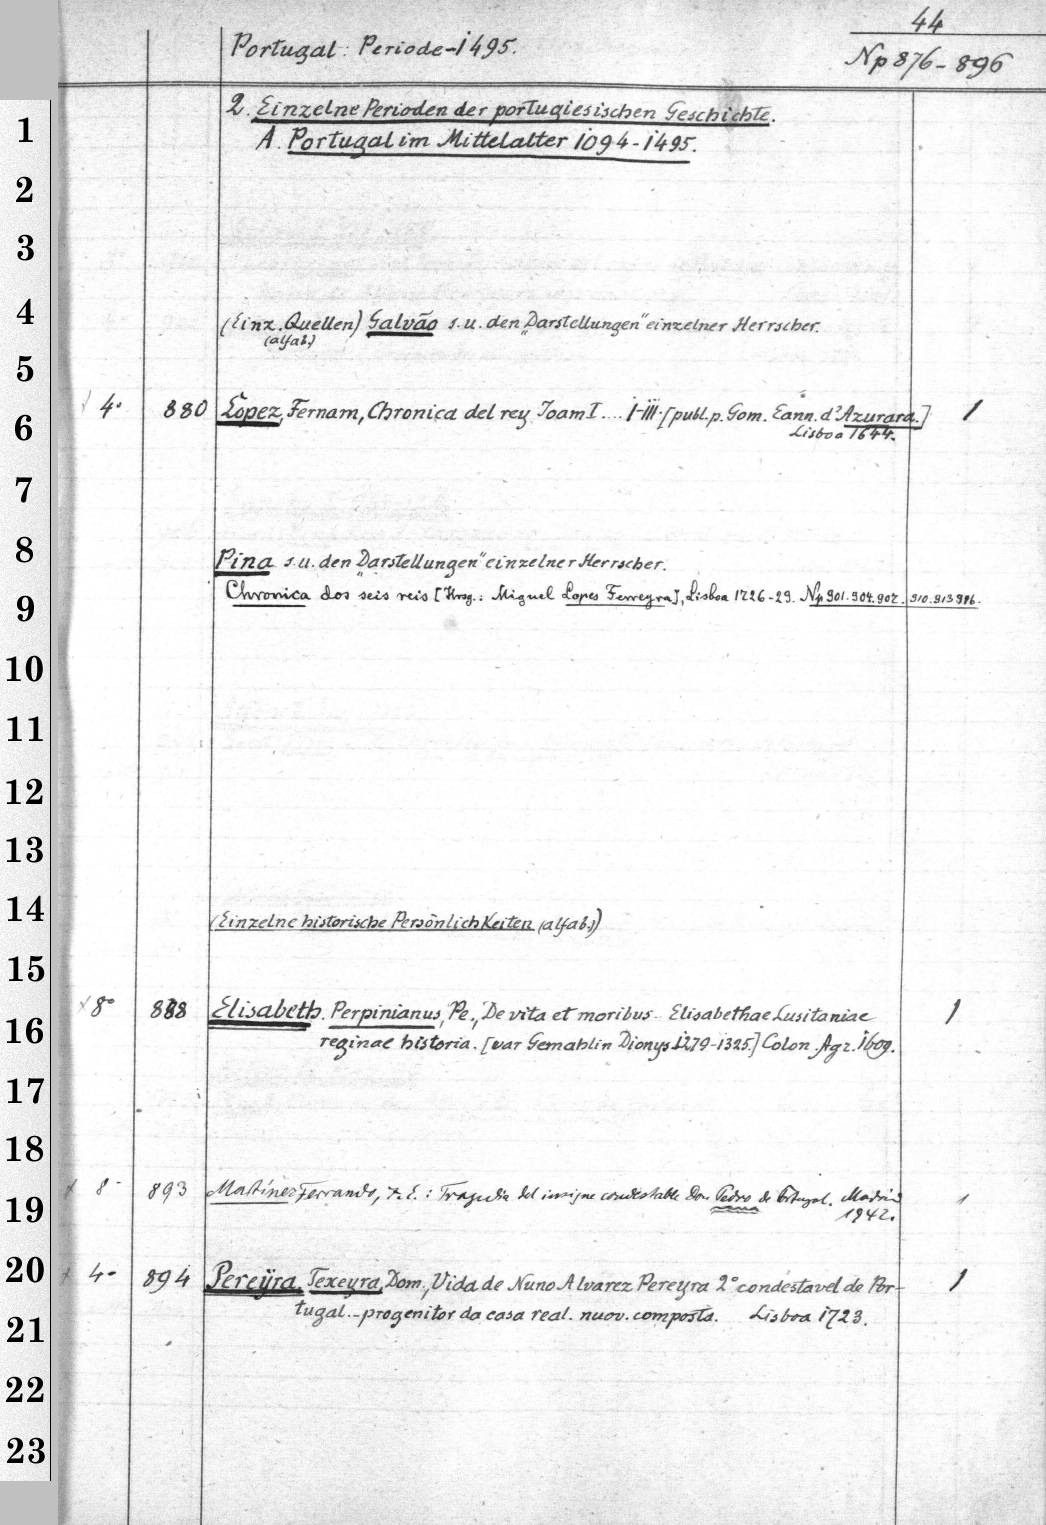 44
Portugal : Periode-1495.
Np 876-896
1
2. Einzelne Perioden der portugiesischen Geschichte.
A. Portugal im Mittelalter 1094-1495.
2
3
4
(Einz. Quellen) Galvão s. u. den „Darstellungen" einzelner Herrscher.
(alfab.)
5
4° 880 Lopez, Fernam, Chronica del rey Joam I .... I-III. [publ. p. Gom. Eann. d'Azurara.] 1
6
Lisboa 1644.
7
8
Pina s. u. den „Darstellungen" einzelner Herrscher.
9
Chronica dos seis reis [Hrsg.: Miguel Lopes Ferreyra], Lisboa 1726-29. Np 901. 904. 907. 910. 913 916.
10
11
12
13
14
(Einzelne historische Persönlichkeiten (alfab.))
15
8° 888 Elisabeth. Perpinianus, Pe., De vita et moribus.. Elisabethae Lusitaniae 1
16
reginae historia. [war Gemahlin Dionys 1279-1325.] Colon. Agr. 1609.
17
18
8° 893 Martínez Ferrando, J. E.: Tragedia del insigne condestable Don Pedro de Portugal. Madrid 1
19
1942.
20
4° 894 Pereÿra. Texeyra, Dom., Vida de Nuno Alvarez Pereyra 2° condestavel de Por- 1
21
tugal... progenitor da casa real. nuov. composta. Lisboa 1723.
22
23